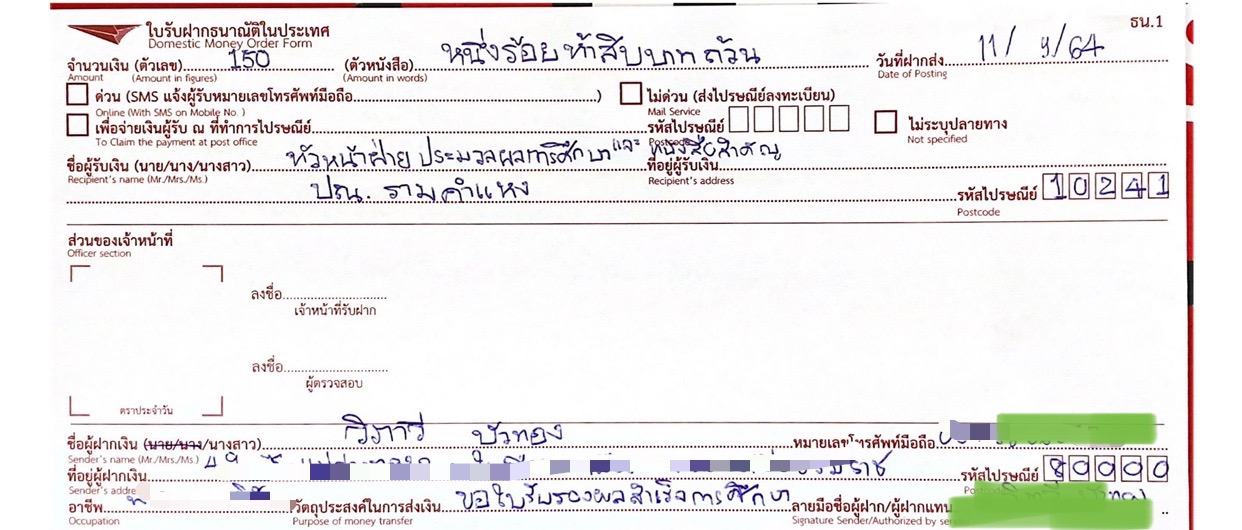 ธน.1
ใบรับฝากธนาณัติในประเทศ
Domestic Money Order Form
จำนวนเงิน (ตัวเลข) 150 (ตัวหนังสือ) หนึ่งร้อยห้าสิบบาทถ้วน วันที่ฝากส่ง 11/ 9/64
Amount (Amount in figures) (Amount in words) Date of Posting
ด่วน (SMS แจ้งผู้รับหมายเลขโทรศัพท์มือถือ ) ไม่ด่วน (ส่งไปรษณีย์ลงทะเบียน)
Online (With SMS on Mobile No. ) Mail Service
เพื่อจ่ายเงินผู้รับ ณ ที่ทำการไปรษณีย์ รหัสไปรษณีย์ ไม่ระบุปลายทาง
To Claim the payment at post office Postcode Not specified
ชื่อผู้รับเงิน (นาย/นาง/นางสาว) หัวหน้าฝ่าย ประมวลผลการศึกษาและ หนังสือสำคัญ ที่อยู่ผู้รับเงิน
Recipient's name (Mr./Mrs./Ms.) Recipient's address
ปณ. รามคำแหง รหัสไปรษณีย์ 10241
Postcode
ส่วนของเจ้าหน้าที่
Officer section
ลงชื่อ
เจ้าหน้าที่รับฝาก
ลงชื่อ
ผู้ตรวจสอบ
ตราประจำวัน
ชื่อผู้ฝากเงิน (นาย/นาง/นางสาว) วิภาวี บัวทอง หมายเลขโทรศัพท์มือถือ
Sender's name (Mr./Mrs./Ms.)
ที่อยู่ผู้ฝากเงิน รหัสไปรษณีย์ 80000
Sender's addre
อาชีพ วัตถุประสงค์ในการส่งเงิน ขอใบรับรองผลสำเร็จการศึกษา ลายมือชื่อผู้ฝาก/ผู้ฝากแทน
Occupation Purpose of money transfer Signature Sender/Authorized by